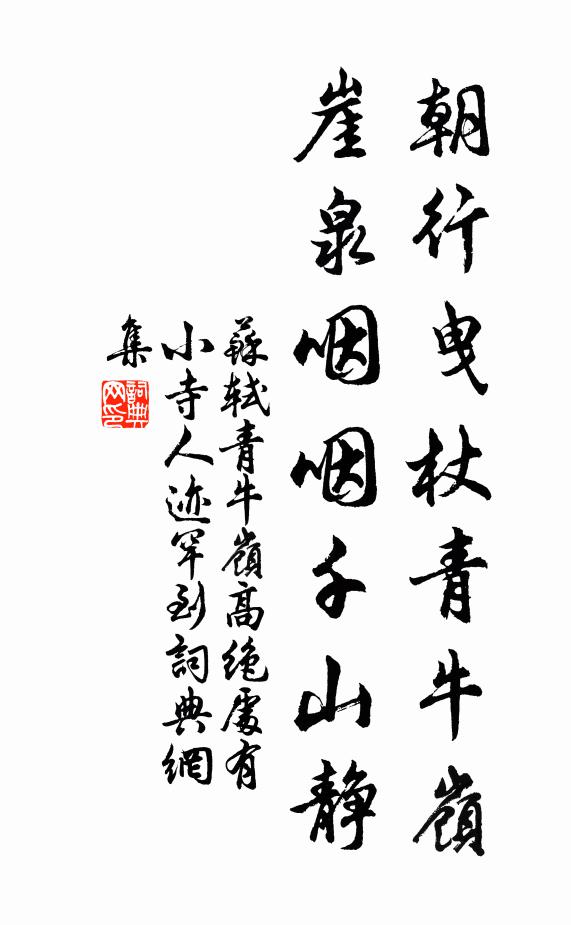 朝行曳杖青牛嶺
崖泉咽咽千山静
蘇軾青牛嶺高绝處有
小寺人迹罕到詞典網
集
詞典
网印